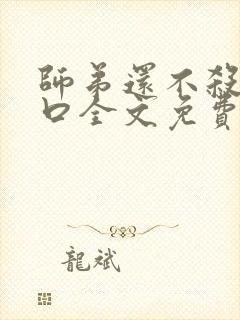 師弟還不殺
口全文免費
龍斌